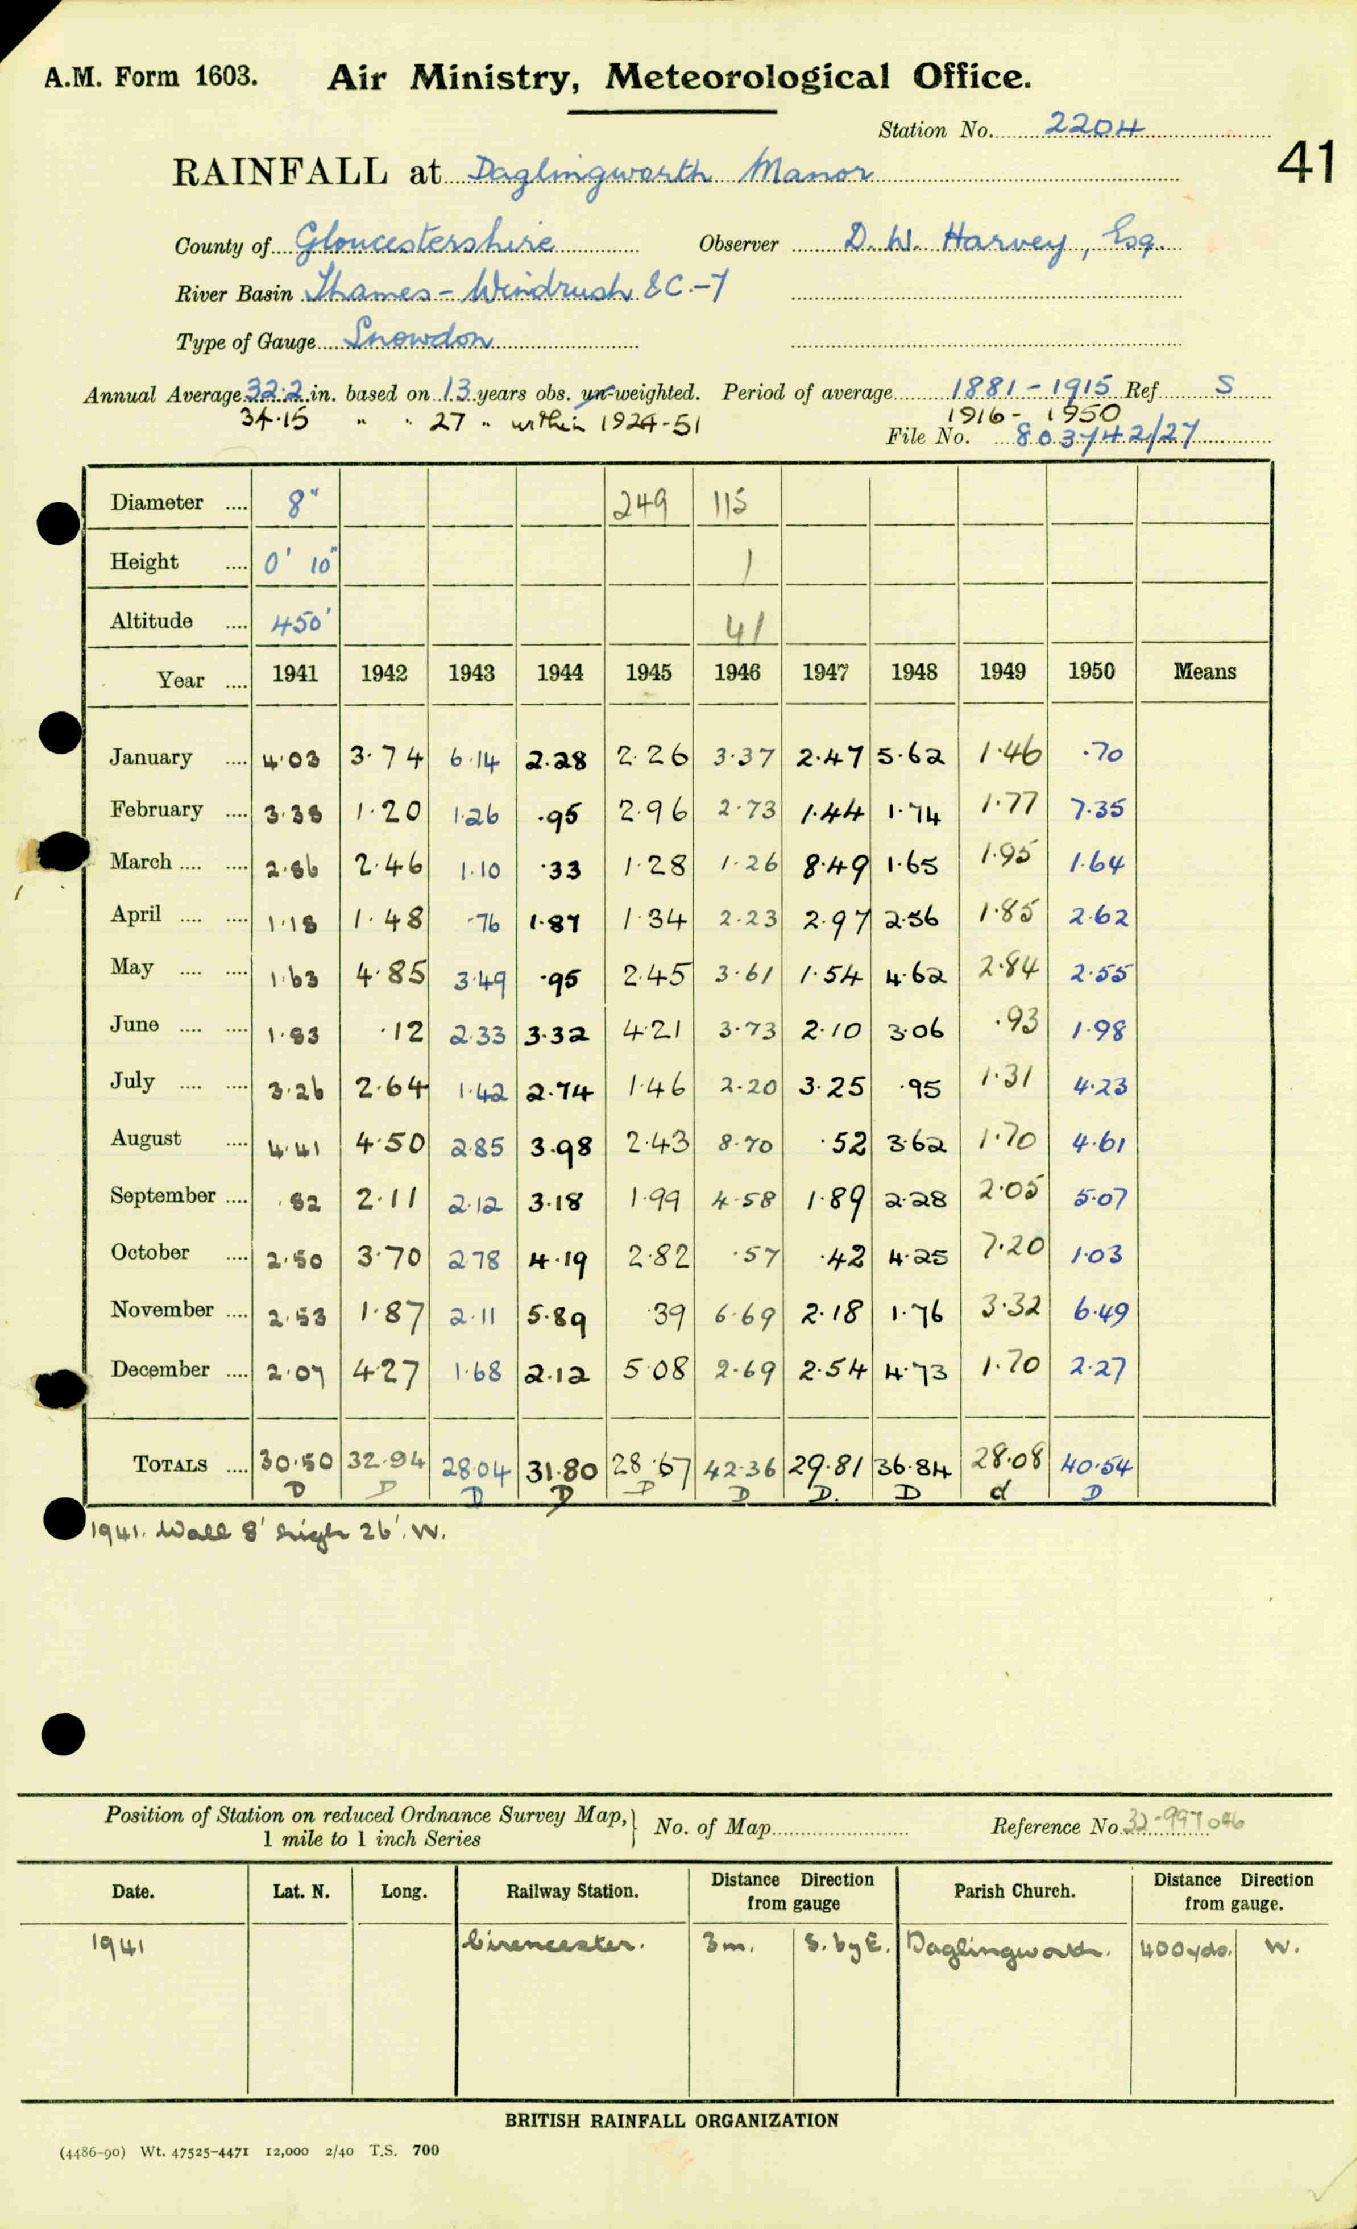 A.M. Form 1603. Air Ministry, Meteorological Office.
Station No. 2204
41
RAINFALL at Daglingworth Manor
County of Gloucestershire Observer D. W. Harvey, Esq.
River Basin Thames - Windrush &C. -7
Type of Gauge Snowdon
Annual Average 32.2 in. based on 13 years obs. un-weighted. Period of average 1881-1915 Ref S
34.15 " " 27 " within 1924-51 1916-1950
File No. 803742/27
Diameter .... 8" 249 115
Height .... 0' 10" 1
Altitude .... 450' 41
Year .... 1941 1942 1943 1944 1945 1946 1947 1948 1949 1950 Means
January .... 4.03 3.74 6.14 2.28 2.26 3.37 2.47 5.62 1.46 .70
February .... 3.38 1.20 1.26 .95 2.96 2.73 1.44 1.74 1.77 7.35
March .... .... 2.86 2.46 1.10 .33 1.28 1.26 8.49 1.65 1.95 1.64
April .... .... 1.18 1.48 .76 1.87 1.34 2.23 2.97 2.56 1.85 2.62
May .... .... 1.63 4.85 3.49 .95 2.45 3.61 1.54 4.62 2.84 2.55
June .... .... 1.83 .12 2.33 3.32 4.21 3.73 2.10 3.06 .93 1.98
July .... .... 3.26 2.64 1.42 2.74 1.46 2.20 3.25 .95 1.31 4.23
August .... 4.41 4.50 2.85 3.98 2.43 8.70 .52 3.62 1.70 4.61
September .... .82 2.11 2.12 3.18 1.99 4.58 1.89 2.28 2.05 5.07
October .... 2.50 3.70 2.78 4.19 2.82 .57 .42 4.25 7.20 1.03
November .... 2.53 1.87 2.11 5.89 .39 6.69 2.18 1.76 3.32 6.49
December .... 2.07 4.27 1.68 2.12 5.08 2.69 2.54 4.73 1.70 2.27
TOTALS .... 30.50 32.94 28.04 31.80 28.67 42.36 29.81 36.84 28.08 40.54
D D D D D D D. D d D
1941. Wall 8' high 26'. W.
Position of Station on reduced Ordnance Survey Map, 1 mile to 1 inch Series } No. of Map Reference No. 32-997046
Date. Lat. N. Long. Railway Station. Distance Direction from gauge Parish Church. Distance Direction from gauge.
1941 Cirencester. 3m. S. by E. Daglingworth. 400 yds. W.
BRITISH RAINFALL ORGANIZATION
(4486-90) Wt. 47525-4471 12,000 2/40 T.S. 700